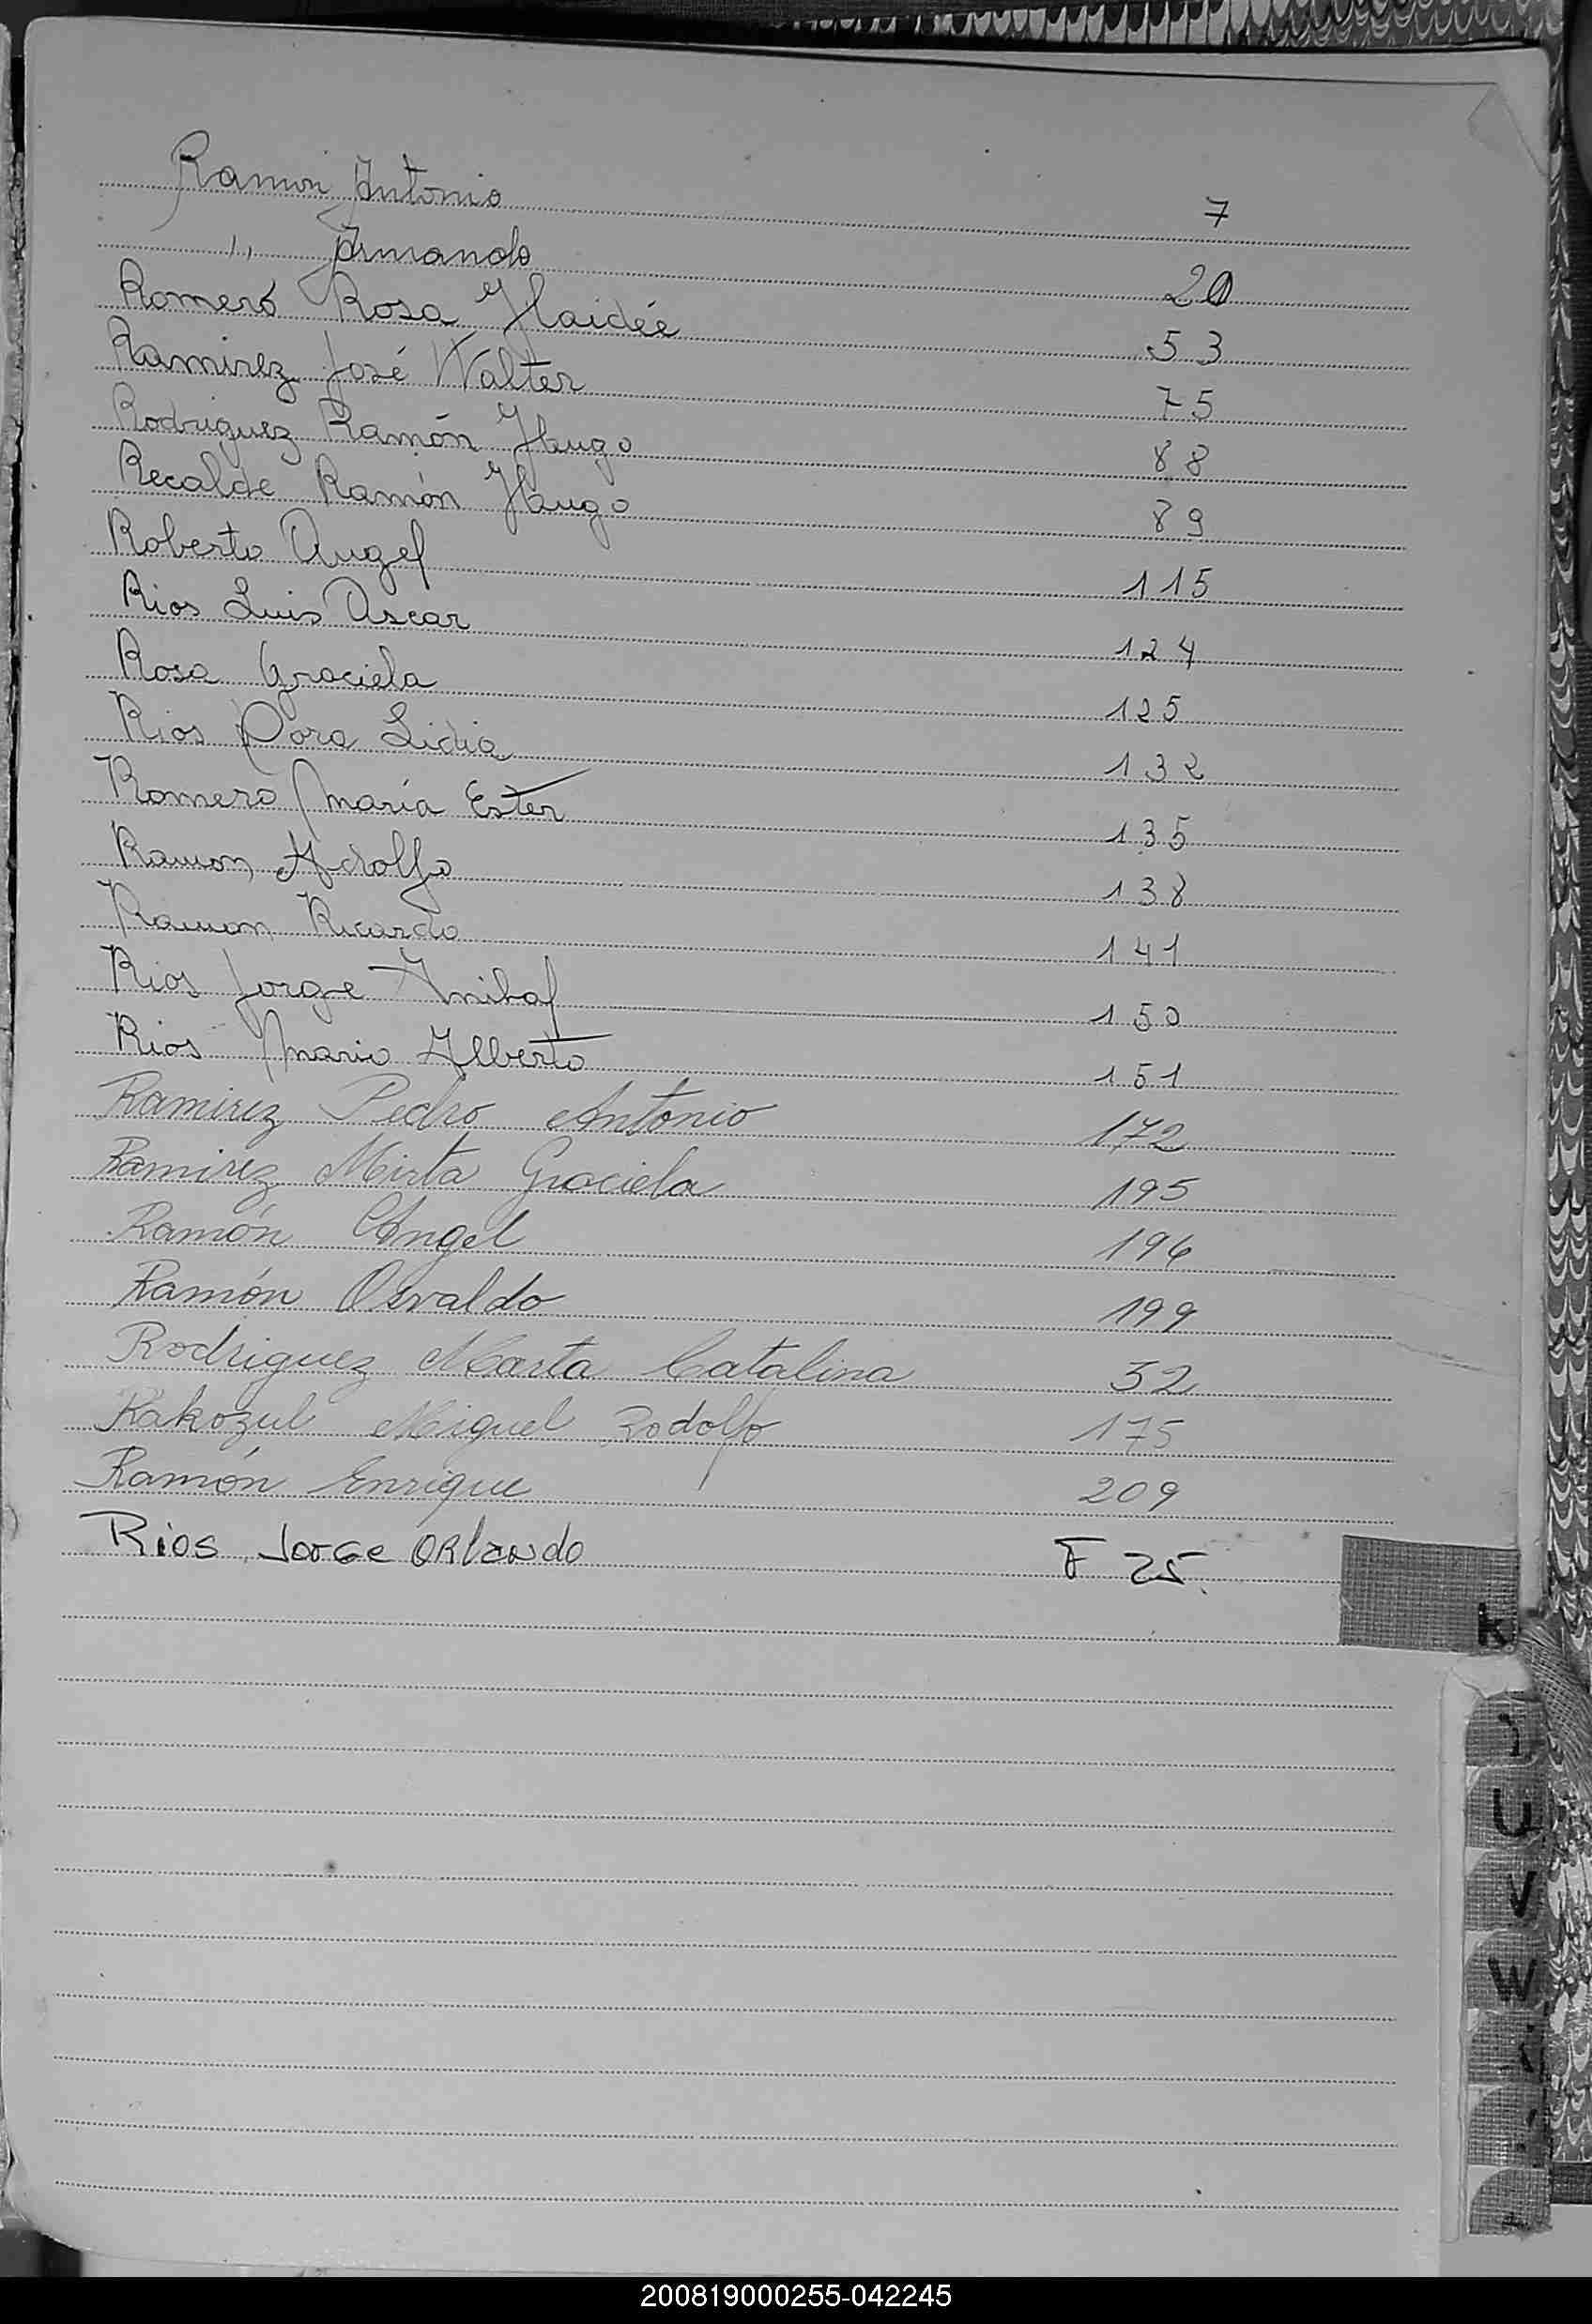 Ramon Antonio 7
" Armando 20
Romero Rosa Haidée 53
Ramirez José Walter 75
Rodriguez Ramón Hugo 88
Recalde Ramón Hugo 89
Roberto Angel 115
Rios Luis Oscar 124
Rosa Graciela 125
Rios Dora Lidia 132
Romero María Ester 135
Ramon Adolfo 138
Ramon Ricardo 141
Rios Jorge Anibal 150
Rios Mario Alberto 151
Ramirez Pedro Antonio 172
Ramirez Mirta Graciela 195
Ramón Angel 196
Ramón Osvaldo 199
Rodriguez Marta Catalina 32
Rakozul Miguel Rodolfo 175
Ramón Enrique 209
Rios Jorge Orlando F 25
R
U
V
W
200819000255-042245